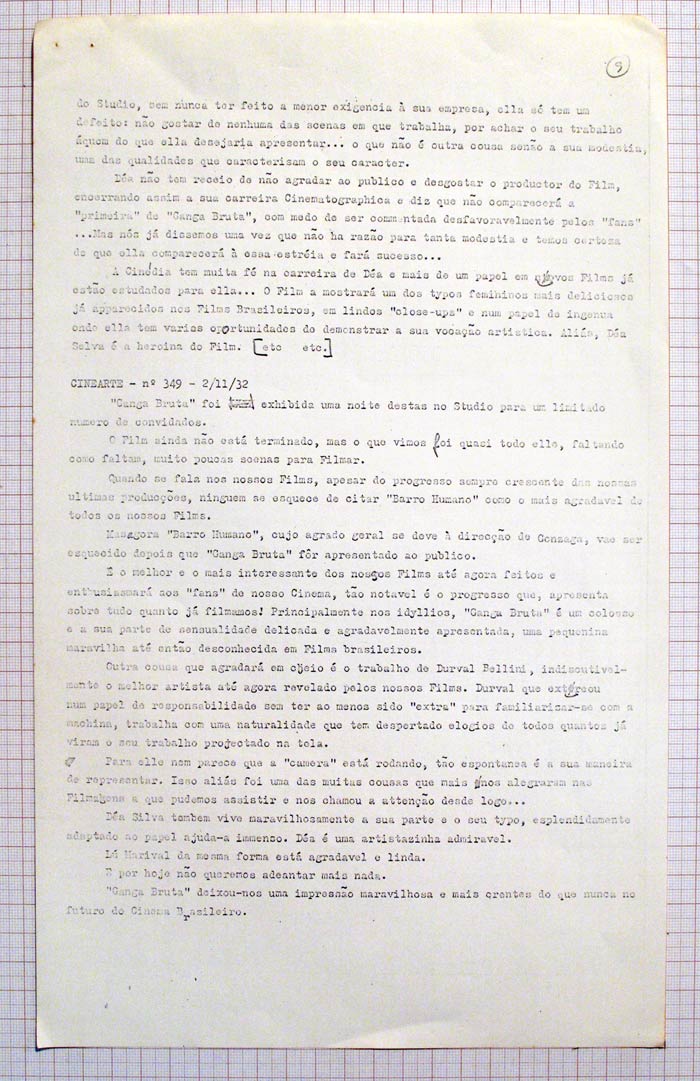 9
do Studio, sem nunca ter feito a menor exigencia à sua empresa, ella só tem um
defeito: não gostar de nenhuma das scenas em que trabalha, por achar o seu trabalho
áquem do que ella desejaria apresentar... o que não é outra cousa senão a sua modestia,
uma das qualidades que caracterisam o seu caracter.
Déa não tem receio de não agradar ao publico e desgostar o productor do Film,
encerrando assim a sua carreira Cinematographica e diz que não comparecerá a
"primeira" de "Ganga Bruta", com medo de ser commentada desfavoravelmente pelos "fans"
...Mas nós já dissemos uma vez que não ha razão para tanta modestia e temos certeza
de que ella comparecerá à essa estréia e fará sucesso...
A Cinédia tem muita fé na carreira de Déa e mais de um papel em novos Films já
estão estudados para ella... O Film a mostrará um dos typos femininos mais deliciosos
já apparecidos nos Films Brasileiros, em lindos "close-ups" e num papel de ingenua
onde ella tem varios oportunidades de demonstrar a sua vocação artistica. Aliás, Déa
Selva é a heroina do Film. [etc etc.]
CINEARTE - nº 349 - 2/11/32
"Ganga Bruta" foi exhibida uma noite destas no Studio para um limitado
numero de convidados.
O Film ainda não está terminado, mas o que vimos foi quasi todo elle, faltando
como faltam, muito poucas scenas para Filmar.
Quando se fala nos nossos Films, apesar do progresso sempre crescente das nossas
ultimas producções, ninguem se esquece de citar "Barro Humano" como o mais agradavel de
todos os nossos Films.
Masagora "Barro Humano", cujo agrado geral se deve à direcção de Gonzaga, vae ser
esquecido depois que "Ganga Bruta" fôr apresentado ao publico.
E o melhor e o mais interessante dos nossos Films até agora feitos e
enthusiasmará aos "fans" de nosso Cinema, tão notavel é o progresso que, apresenta
sobre tudo quanto já filmamos! Principalmente nos idyllios, "Ganga Bruta" é um colosso
e a sua parte de sensualidade delicada e agradavelmente apresentada, uma pequenina
maravilha até então desconhecida em Films brasileiros.
Outra cousa que agradará em cheio é o trabalho de Durval Bellini, indiscutivel-
mente o melhor artista até agora revelado pelos nossos Films. Durval que estreou
num papel de responsabilidade sem ter ao menos sido "extra" para familiarizar-se com a
machina, trabalha com uma naturalidade que tem despertado elogios de todos quantos já
viram o seu trabalho projectado na tela.
Para elle nem parece que a "camera" está rodando, tão espontanea é a sua maneira
de representar. Isso aliás foi uma das muitas cousas que mais nos alegraram nas
Filmagens a que pudemos assistir e nos chamou a attenção desde logo...
Déa Silva tambem vive maravilhosamente a sua parte e o seu typo, esplendidamente
adaptado ao papel ajuda-a immenso. Déa é uma artistazinha admiravel.
Lú Marival da mesma forma está agradavel e linda.
E por hoje não queremos adeantar mais nada.
"Ganga Bruta" deixou-nos uma impressão maravilhosa e mais crentes do que nunca no
futuro do Cinema Brasileiro.